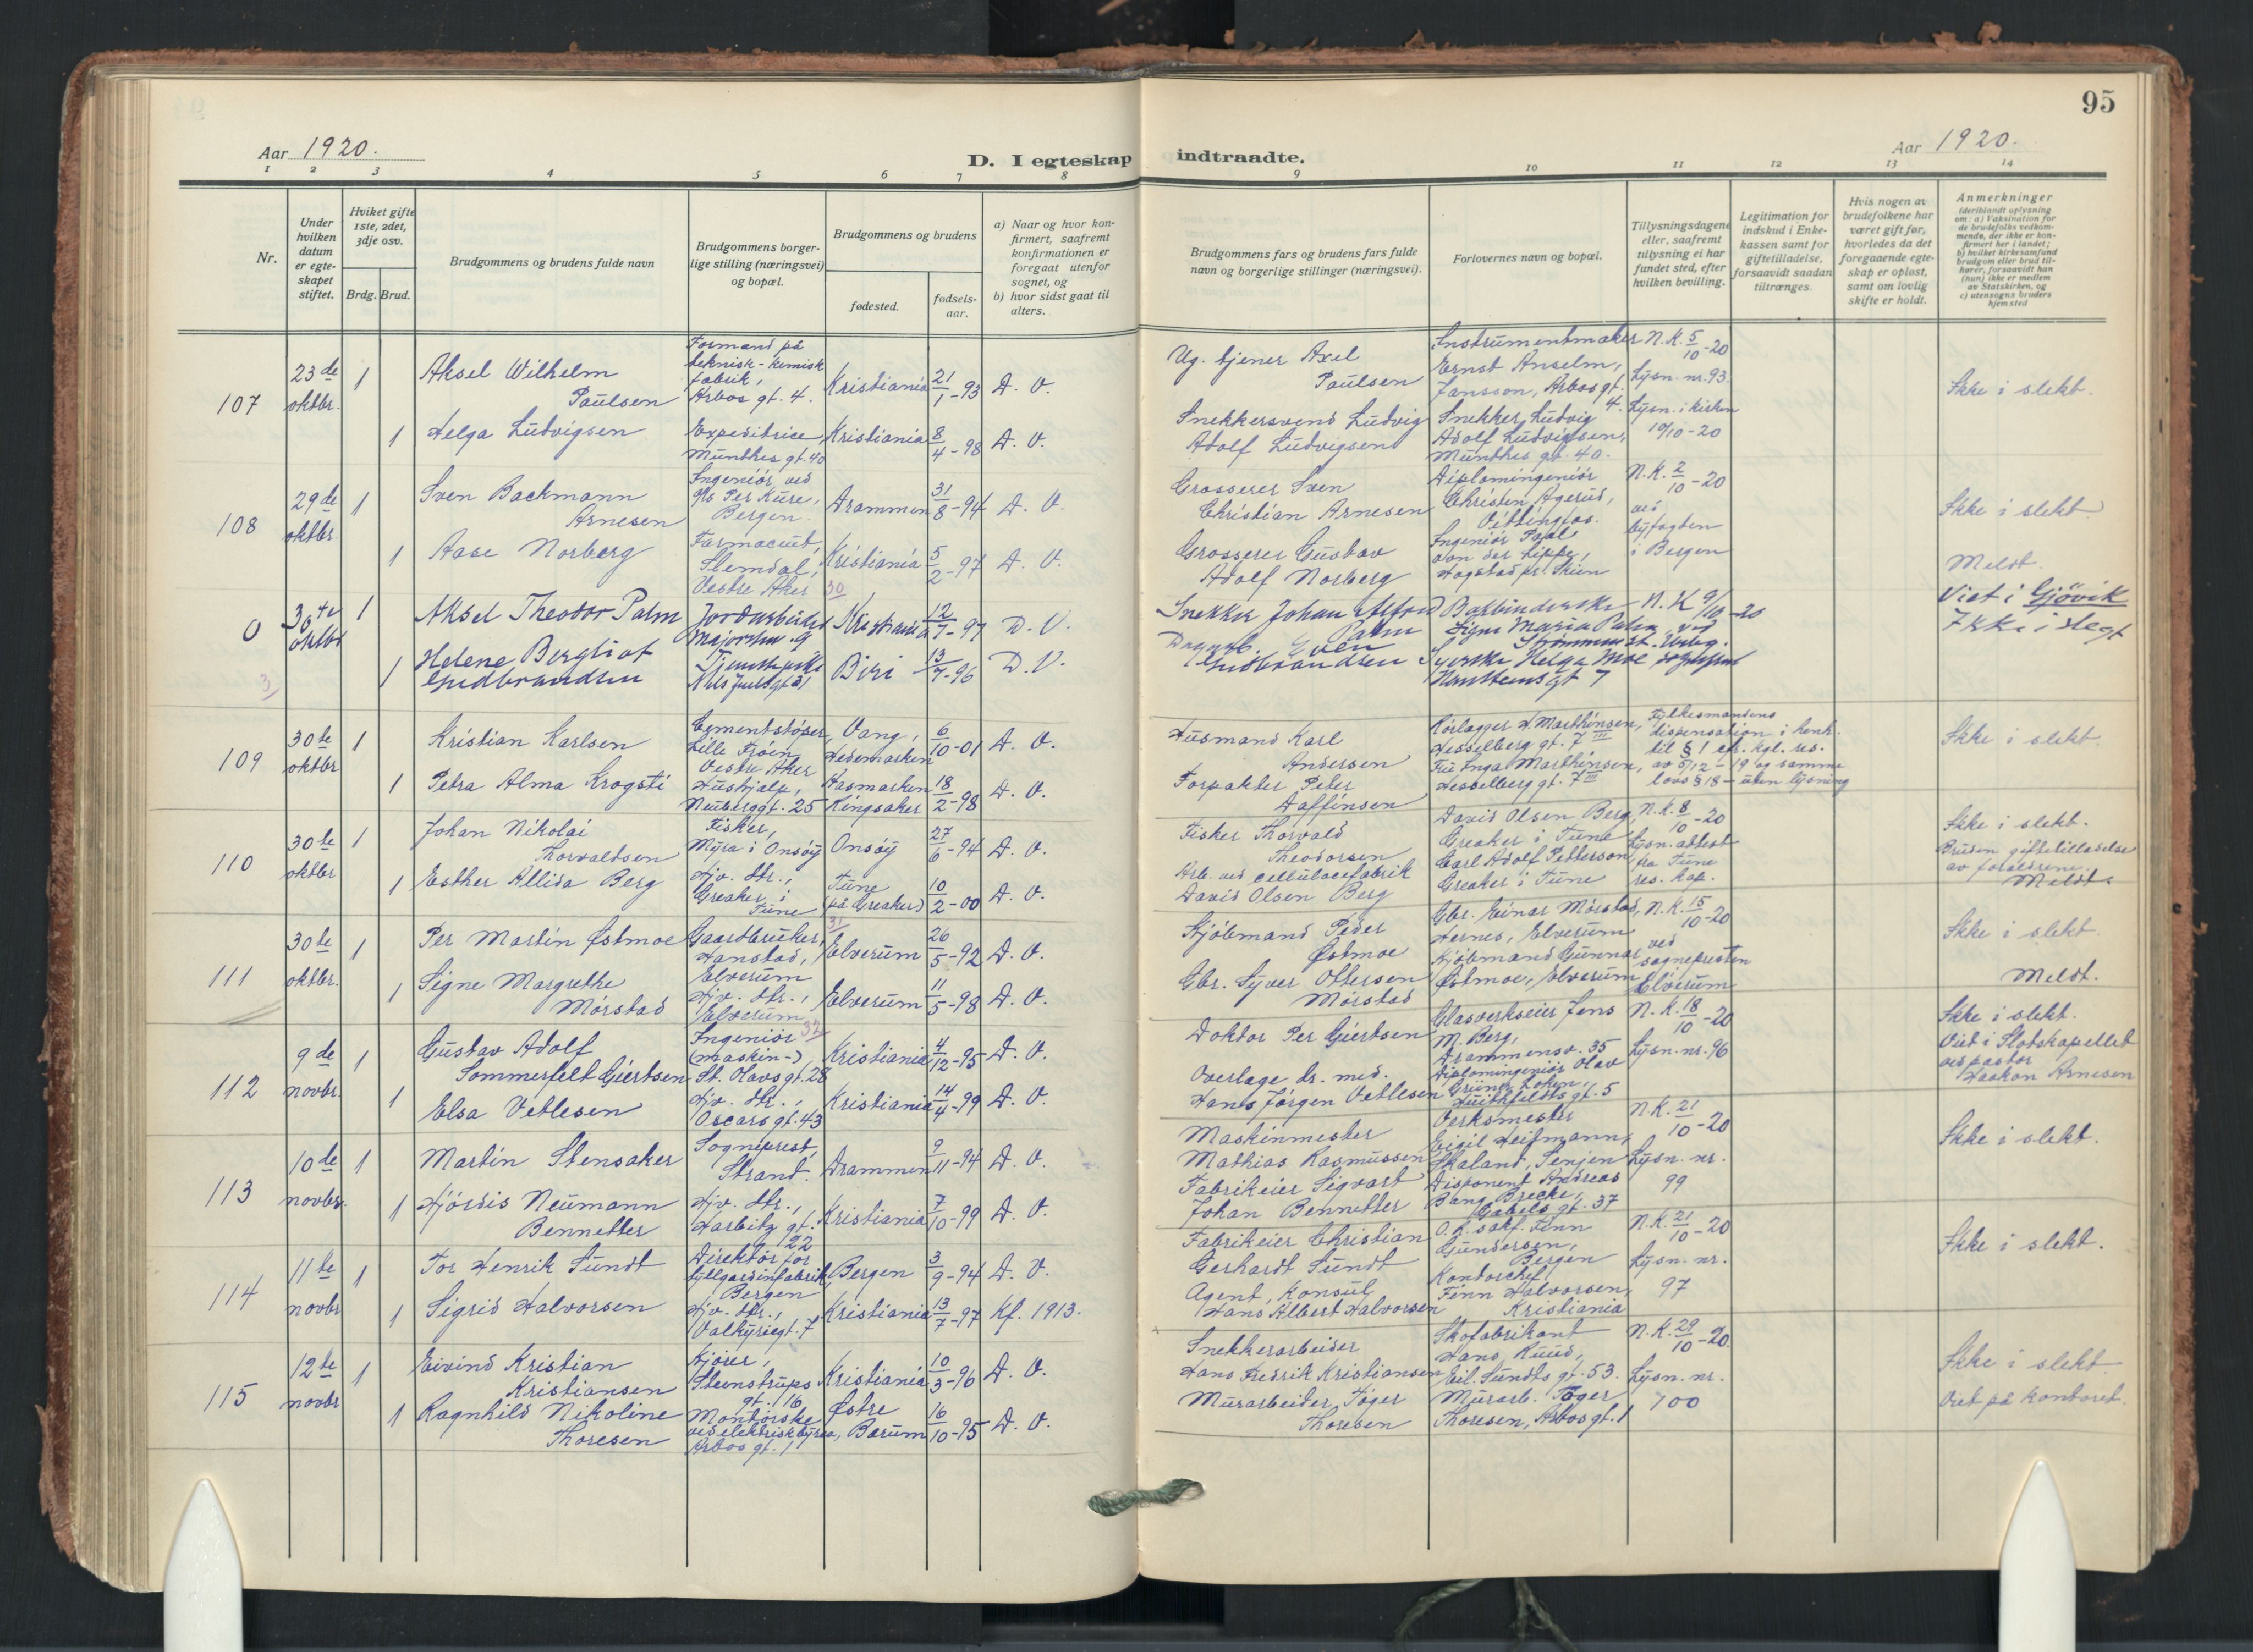 95
Aar 1920.
D. I egteskap indtraadte.
Aar 1920.
1 2 3 4 5 6 7 8 9 10 11 12 13 14
Nr.
Under hvilken datum er egte-skapet stiftet.
Hviket gifte 1ste, 2det, 3dje osv.
Brdg. Brud.
Brudgommens og brudens fulde navn
Brudgommens borger-lige stilling (næringsvei) og bopæl.
Brudgommens og brudens
fødested.
fødsels-aar.
a) Naar og hvor kon-firmert, saafremt konfirmationen er foregaat utenfor sognet, og
b) hvor sidst gaat til alters.
Brudgommens fars og brudens fars fulde navn og borgerlige stillinger (næringsvei).
Forlovernes navn og bopæl.
Tillysningsdagene eller, saafremt tillysning ei har fundet sted, efter hvilken bevilling.
Legitimation for indskud i Enke-kassen samt for giftetilladelse, forsaavidt saadan tiltrænges.
Hvis nogen av brudefolkene har været gift før, hvorledes da det foregaaende egte-skap er opløst, samt om lovlig skifte er holdt.
Anmerkninger (deriblandt oplysning om: a) Vaksination for de brudefolks vedkom-mende, der ikke er kon-firmert her i landet; b) hvilket kirkesamfund brudgom eller brud til-hører, forsaavidt han (hun) ikke er medlem av Statskirken, og c) utensogns bruders hjemsted
107 23de oktbr. 1 Aksel Wilhelm Paulsen Formand på teknisk-kemisk fabrik, Arbos gt. 4. Kristiania 21/1-93 D. V. Ug. tjener Axel Paulsen Instrumentmaker Ernst Anselm, Jansson, Arbos gt. 4. N.K. 5/10-20 Lysn. nr. 93. Ikke i slekt.
1 Helga Ludvigsen Expeditrice, Munthes gt. 40 Kristiania 8/4-98 D. V. Snekkersvend Ludvig Adolf Ludvigsen Snekker Ludvig Adolf Ludvigsen, Munthes gt. 40. Lysn. i kirken 10/10-20
108 29de oktbr 1 Sven Backmann Arnesen Ingeniør ved A/s Per Kure, Bergen. Drammen 31/8-94 D. V. Grosserer Sven Christian Arnesen Diplomingeniør Christen Agerud, Vittingfos. N.K. 2/10-20 ved byfogden i Bergen Ikke i slekt
1 Aase Norberg Farmaceut, Slemdal, Vestre Aker Kristiania 5/2-97 D. V. Grosserer Gustav Adolf Norberg Ingeniør Paal von der Lippe, Hogstad pr. Skien Meldt.
30
0 30te oktbr 1 Aksel Theodor Palm Jordarbeider Kristiania 12/7-97 D. V. Snekker Johan Alfred Palm Bokbinderske Signe Maria Palm N. K 9/10-20 Viet i Gjövik Ikke i slegt
3 1 Helene Bergliot Gudbrandsen Niels Juels gt 31 Biri 13/7-96 D. V. Dagarb. Even Gudbrandsen Syerske Helga Moe Hansteensgt 7
109 30te oktbr 1 Kristian Karlsen Cementstøper, Lille Frøen Vestre Aker Vang, Hedemarken 6/10-01 D. V. Husmand Karl Andersen Rørlægger H. Marthinsen, Hesselberg gt. 7 III Fylkesmandens dispensation i henh. til § 1 cfr. kgl. res. av 5/12-19 og samme lovs § 18 - uten lysning Ikke i slekt.
1 Petra Alma Krogsti Hushjælp, Neuberggt. 25 Aasmarken Ringsaker 18/2-98 D. V. Forpakter Peter Daffinsen Fru Inga Marthinsen, Hesselberg gt. 7 III
110 30te oktbr 1 Johan Nikolai Thorvaldsen Fisker, Myra i Onsøy Onsøy 27/6-94 D. V. Fisker Thorvald Theodorsen David Olsen Berg, Greaker i Tune N.K. 8/10-20 Lysn. attest fra Tune res. kap. Ikke i slekt. Bruden giftetilladelse av forældrene. Meldt.
1 Esther Allida Berg Hjv. dtr., Greaker i Tune Tune (på Greaker) 10/2-00 D. V. Arb. ved cellulosefabrik David Olsen Berg Carl Adolf Petterson, Greaker i Tune
31
111 30te oktbr. 1 Per Martin Østmoe Gaardbruker, Hanstad, Elverum Elverum 26/5-92 D. V. Kjøbmand Peder Østmoe Gbr. Einar Mörstad, Hernes, Elverum N.K. 15/10-20 ved sognepresten Elverum Ikke i slekt.
1 Signe Margrethe Mörstad Hjv. dtr., Elverum Elverum 11/5-98 D. V. Gbr. Syver Ottersen Mörstad Kjöbmand Gunnar Østmoe, Elverum Meldt.
32
112 9de novbr. 1 Gustav Adolf Sommerfelt Giertsen Ingeniør (maskin-) St. Olavs gt. 28 Kristiania 4/12-95 D. V. Doktor Per Giertsen Glasverkseier Jens M. Berg, Drammensv. 35 N. K. 18/10-20 Lysn. nr. 96 Ikke i slekt. Viet i Slotskapellet ved pastor Haakon Arnesen
1 Elsa Vetlesen Hjv. dtr., Oscars gt. 43 Kristiania 14/4-99 D. V. Overlæge dr. med. Hans Jørgen Vetlesen Diplomingeniør Olav Grüner Løken, Huitfeldts gt. 5
113 10de novbr. 1 Martin Stensaker Sogneprest, Strand. Drammen 9/11-94 D. V. Maskinmester Mathias Rasmussen Verksmester Eigil Heitmann, Skaland, Senjen N.K. 21/10-20 Lysn. nr. 99 Ikke i slekt.
1 Hjördis Neumann Bennetter Hjv. dtr., Harbitz gt. 22 Kristiania 7/10-99 D. V. Fabrikeier Sigvart Johan Bennetter Disponent Andreas Bang Brecke, Gabels gt. 37
114 11te novbr 1 Tor Henrik Sundt Direktør for tyllgardinfabrik Bergen Bergen 3/9-94 D. V. Fabrikeier Christian Gerhardt Sundt O.r. sakf. Finn Gundersen, Bergen N.K. 21/10-20 Lysn. nr. 97 Ikke i slekt.
1 Sigrid Halvorsen Hjv. dtr., Valkyriegt. 7 Kristiania 13/7-97 Kf. 1913. Agent, Konsul Hans Albert Halvorsen Kontorchef Finn Halvorsen, Kristiania
115 12te novbr 1 Eivind Kristian Kristiansen Kjører, Steenstrups gt. 16 Kristiania 10/3-96 D. V. Snekkerarbeider Hans Fredrik Kristiansen Skofabrikant Hans Ruud, Eil. Sundts gt. 53. N.K. 29/10-20. Lysn. nr. 700 Ikke i slekt. Viet på kontoret.
1 Ragnhild Nikoline Thoresen Montørske ved elektrisk byraa, Arbos gt. 1 Østre Bærum 16/10-95 D. V. Murarbeider Tøger Thoresen Murarb. Tøger Thoresen, Arbos gt. 1